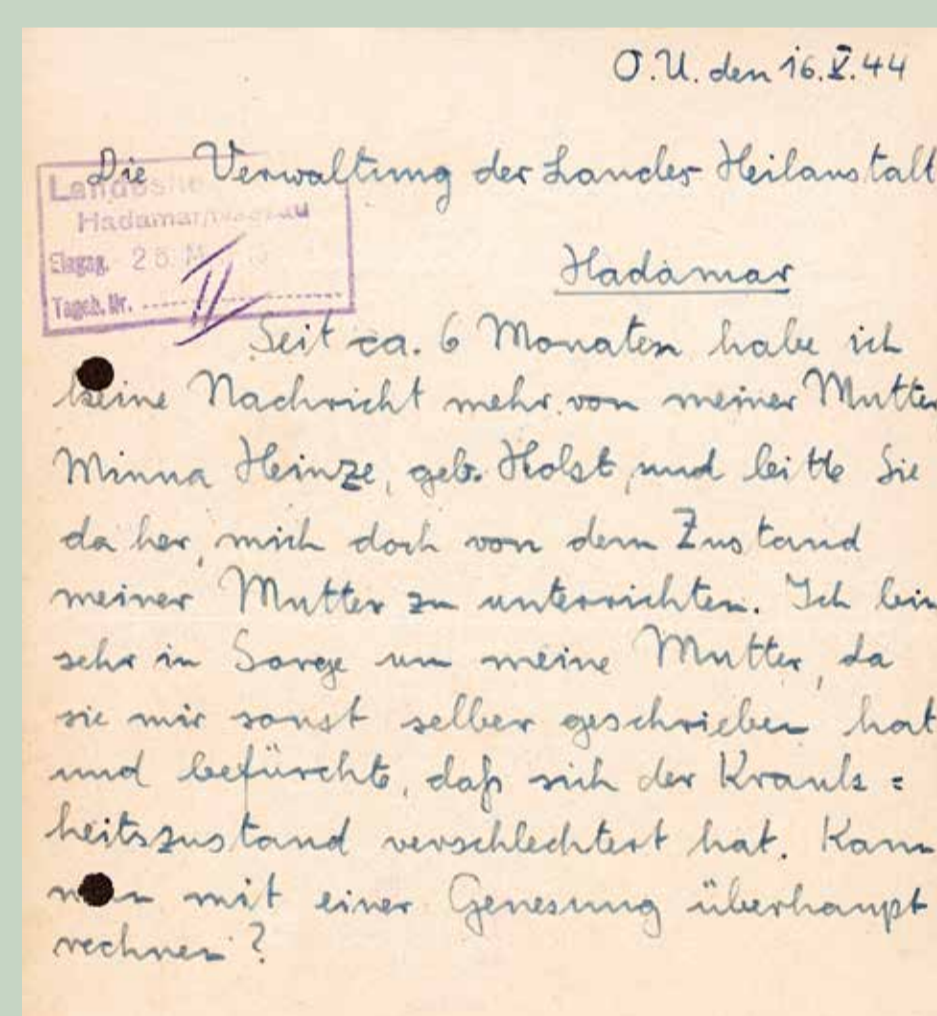 O.U. den 16.V.44
Die Verwaltung der Landes-Heilanstalt
Hadamar
Eingeg. 26. M
Tageb. Nr.
II
Seit ca. 6 Monaten habe ich
keine Nachricht mehr von meiner Mutter
Minna Heinze, geb. Holst, und bitte Sie
daher, mich doch von dem Zustand
meiner Mutter zu unterrichten. Ich bin
sehr in Sorge um meine Mutter, da
sie mir sonst selber geschrieben hat
und befürchte, daß sich der Krank=
heitszustand verschlechtert hat. Kann
man mit einer Genesung überhaupt
rechnen?